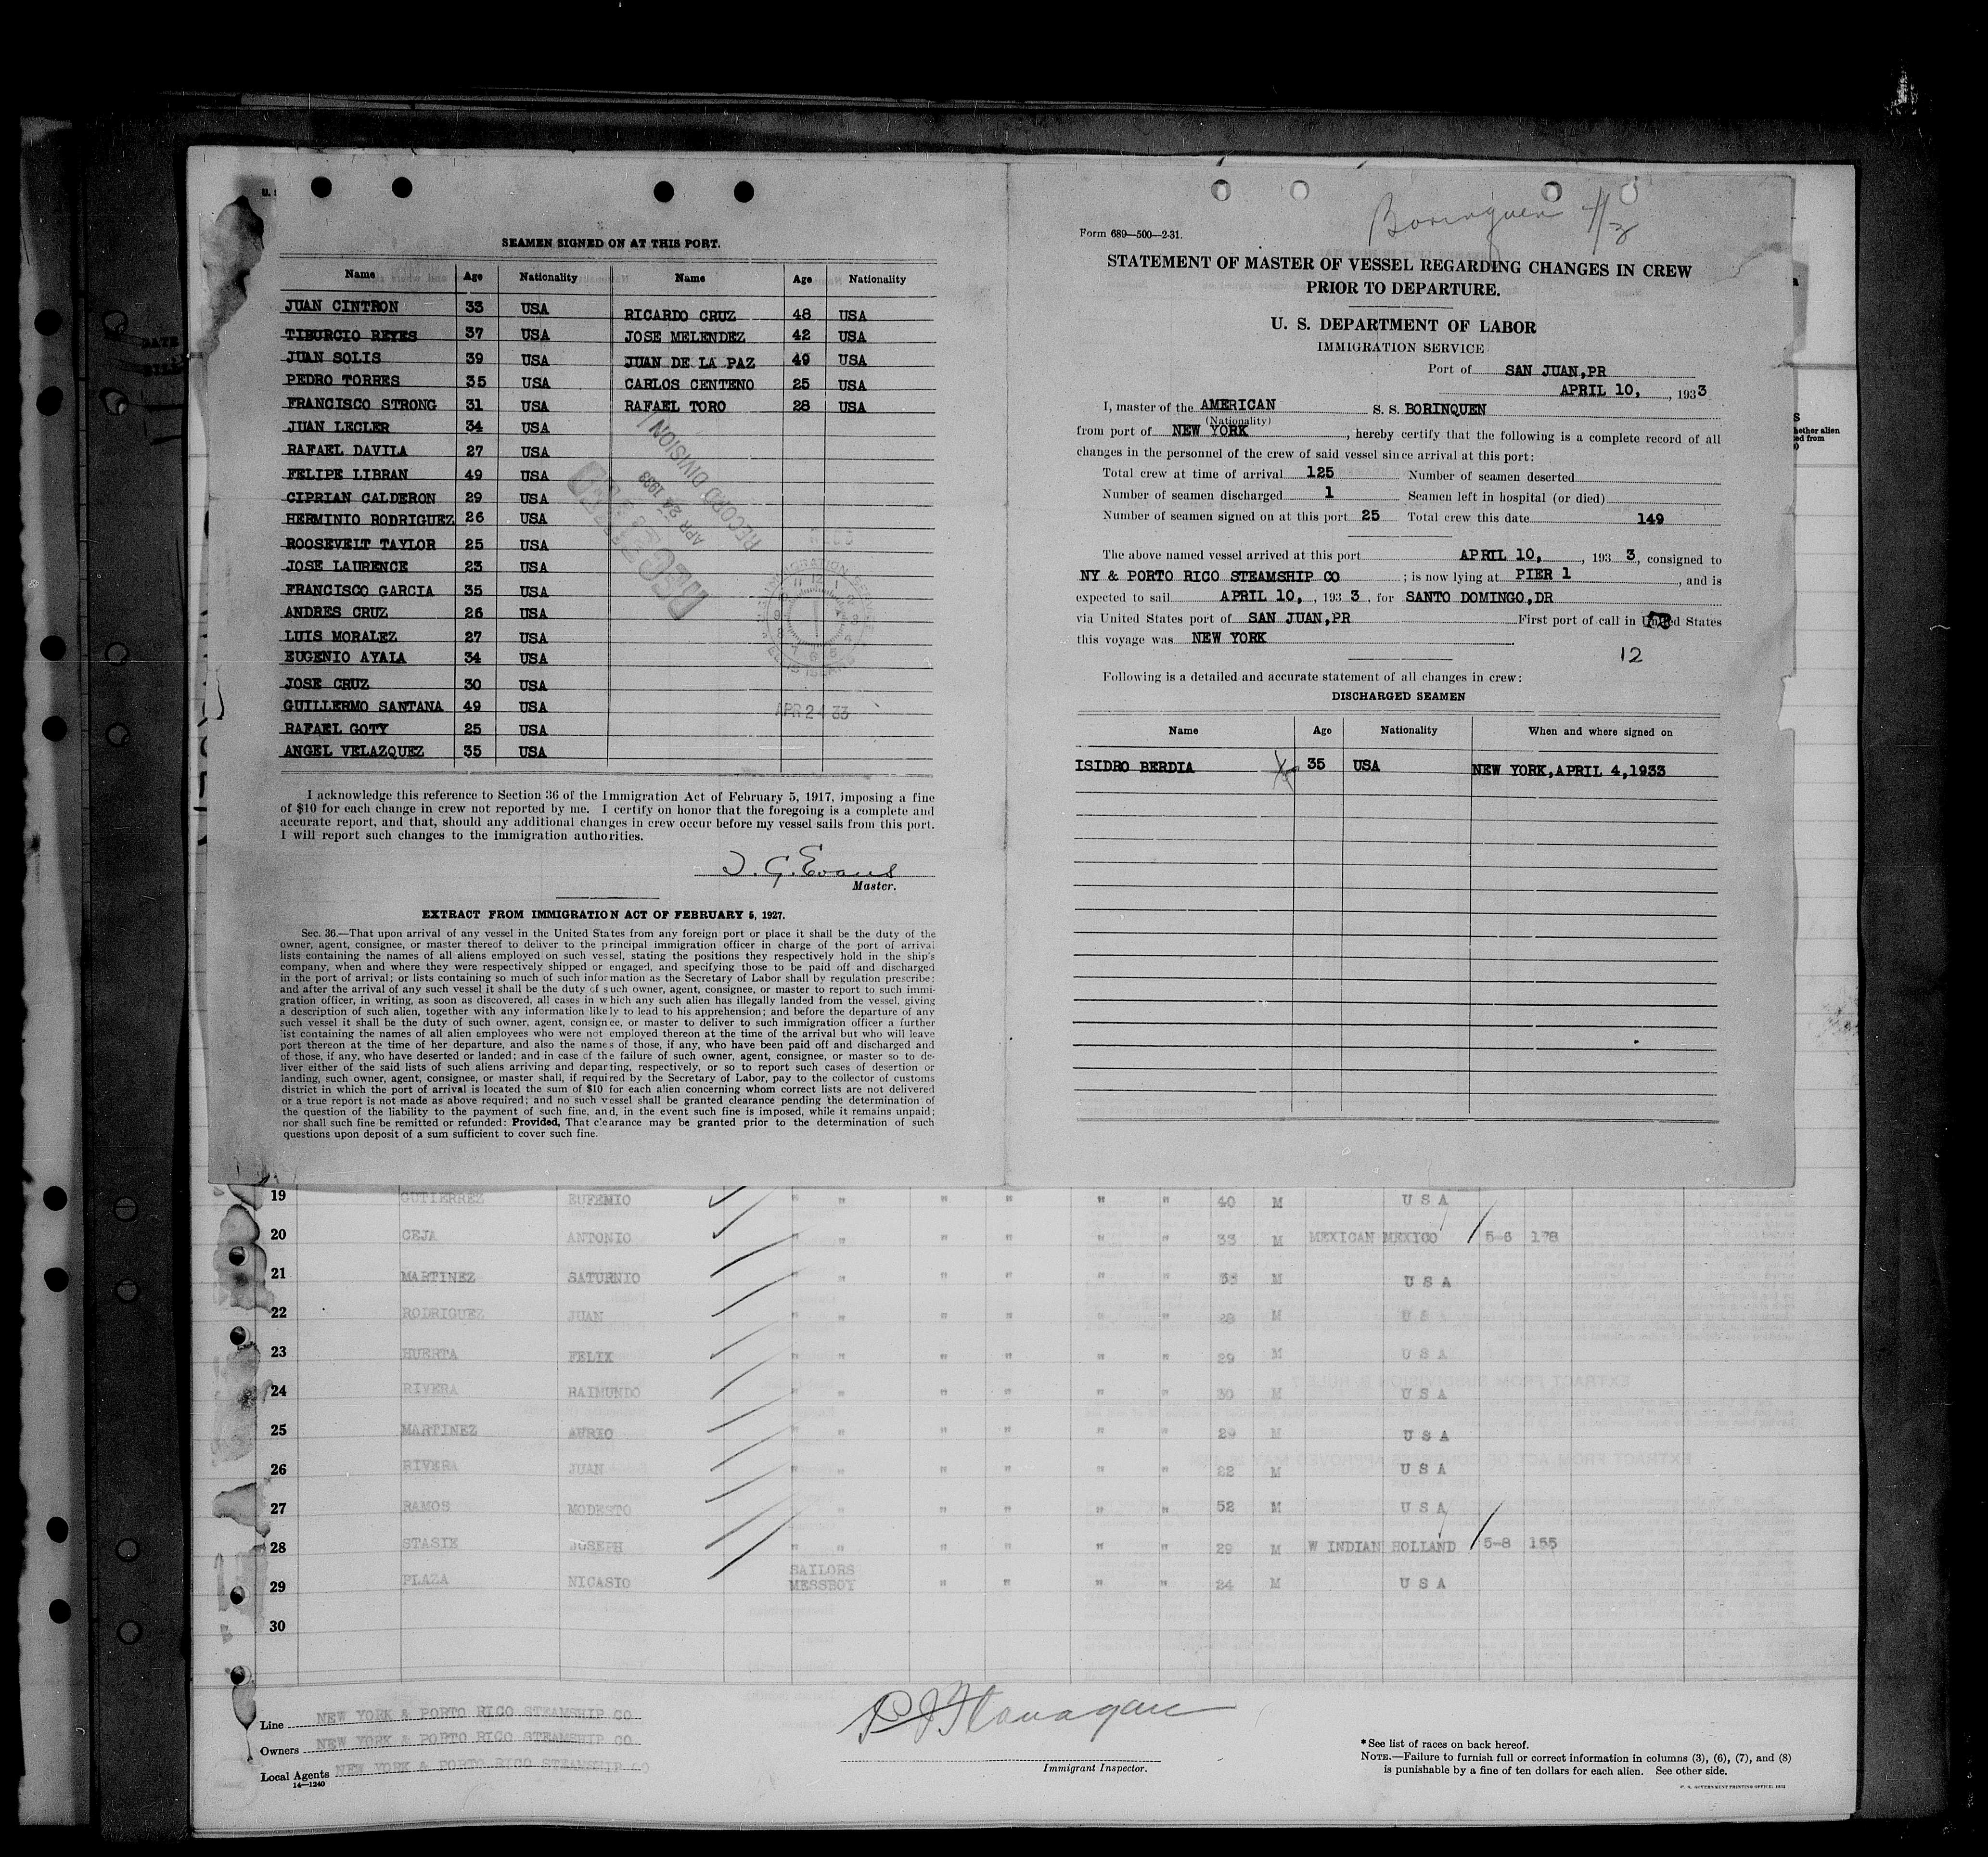 SEAMEN SIGNED ON AT THIS PORT.
Name Age Nationality Name Age Nationality
JUAN CINTRON 33 USA RICARDO CRUZ 48 USA
TIBURCIO REYES 37 USA JOSE MELENDEZ 42 USA
JUAN SOLIS 39 USA JUAN DE LA PAZ 49 USA
PEDRO TORRES 35 USA CARLOS CENTENO 25 USA
FRANCISCO STRONG 31 USA RAFAEL TORO 28 USA
JUAN LECLER 34 USA
RAFAEL DAVILA 27 USA
FELIPE LIBRAN 49 USA
CIPRIAN CALDERON 29 USA
HERMINIO RODRIGUEZ 26 USA
ROOSEVELT TAYLOR 25 USA
JOSE LAURENCE 23 USA
FRANCISCO GARCIA 35 USA
ANDRES CRUZ 26 USA
LUIS MORALEZ 27 USA
EUGENIO AYALA 34 USA
JOSE CRUZ 30 USA
GUILLERMO SANTANA 49 USA
RAFAEL GOTY 25 USA
ANGEL VELAZQUEZ 35 USA
RECORD DIVISION
APR 24 1933
APR 24 33
I acknowledge this reference to Section 36 of the Immigration Act of February 5, 1917, imposing a fine
of $10 for each change in crew not reported by me. I certify on honor that the foregoing is a complete and
accurate report, and that, should any additional changes in crew occur before my vessel sails from this port.
I will report such changes to the immigration authorities.
Evans
Master.
EXTRACT FROM IMMIGRATION ACT OF FEBRUARY 5, 1927.
Sec. 36.—That upon arrival of any vessel in the United States from any foreign port or place it shall be the duty of the
owner, agent, consignee, or master thereof to deliver to the principal immigration officer in charge of the port of arrival
lists containing the names of all aliens employed on such vessel, stating the positions they respectively hold in the ship's
company, when and where they were respectively shipped or engaged, and specifying those to be paid off and discharged
in the port of arrival; or lists containing so much of such information as the Secretary of Labor shall by regulation prescribe;
and after the arrival of any such vessel it shall be the duty of such owner, agent, consignee, or master to report to such immi-
gration officer, in writing, as soon as discovered, all cases in which any such alien has illegally landed from the vessel, giving
a description of such alien, together with any information likely to lead to his apprehension; and before the departure of any
such vessel it shall be the duty of such owner, agent, consignee, or master to deliver to such immigration officer a further
list containing the names of all alien employees who were not employed thereon at the time of the arrival but who will leave
port thereon at the time of her departure, and also the names of those, if any, who have been paid off and discharged and
of those, if any, who have deserted or landed; and in case of the failure of such owner, agent, consignee, or master so to de-
liver either of the said lists of such aliens arriving and departing, respectively, or so to report such cases of desertion or
landing, such owner, agent, consignee, or master shall, if required by the Secretary of Labor, pay to the collector of customs
district in which the port of arrival is located the sum of $10 for each alien concerning whom correct lists are not delivered
or a true report is not made as above required; and no such vessel shall be granted clearance pending the determination of
the question of the liability to the payment of such fine, and, in the event such fine is imposed, while it remains unpaid;
nor shall such fine be remitted or refunded: Provided, That clearance may be granted prior to the determination of such
questions upon deposit of a sum sufficient to cover such fine.
Borinquen
Form 689—500—2-31.
STATEMENT OF MASTER OF VESSEL REGARDING CHANGES IN CREW
PRIOR TO DEPARTURE.
U. S. DEPARTMENT OF LABOR
IMMIGRATION SERVICE
Port of SAN JUAN,PR
APRIL 10, , 1933
I, master of the AMERICAN S. S. BORINQUEN
(Nationality)
from port of NEW YORK , hereby certify that the following is a complete record of all
changes in the personnel of the crew of said vessel since arrival at this port:
Total crew at time of arrival 125 Number of seamen deserted
Number of seamen discharged 1 Seamen left in hospital (or died)
Number of seamen signed on at this port 25 Total crew this date 149
The above named vessel arrived at this port APRIL 10, , 193 3, consigned to
NY & PORTO RICO STEAMSHIP CO ; is now lying at PIER 1 , and is
expected to sail APRIL 10, , 193 3 , for SANTO DOMINGO,DR
via United States port of SAN JUAN,PR First port of call in United States
this voyage was NEW YORK
12
Following is a detailed and accurate statement of all changes in crew:
DISCHARGED SEAMEN
Name Age Nationality When and where signed on
ISIDRO BERDIA 35 USA NEW YORK,APRIL 4,1933
19 GUTIERREZ EUFEMIO " " " " " " 40 M U S A
20 CEJA ANTONIO " " " " " " 33 M MEXICAN MEXICO 5-6 178
21 MARTINEZ SATURNIO " " " " " " M U S A
22 RODRIGUEZ JUAN " " " " " " 28 M U S A
23 HUERTA FELIX " " " " " " 29 M U S A
24 RIVERA RAIMUNDO " " " " " " 30 M U S A
25 MARTINEZ AURIO " " " " " " 29 M U S A
26 RIVERA JUAN " " " " " " 22 M U S A
27 RAMOS MODESTO " " " " " " 52 M U S A
28 STASIE JOSEPH " " " " " " 29 M W INDIAN HOLLAND 5-8 155
29 PLAZA NICASIO SAILORS MESSBOY " " " " 24 M U S A
30
Line NEW YORK & PORTO RICO STEAMSHIP CO
Owners NEW YORK & PORTO RICO STEAMSHIP CO
Local Agents NEW YORK & PORTO RICO STEAMSHIP CO
14—1240
Flanagan
Immigrant Inspector.
*See list of races on back hereof.
NOTE.—Failure to furnish full or correct information in columns (3), (6), (7), and (8)
is punishable by a fine of ten dollars for each alien. See other side.